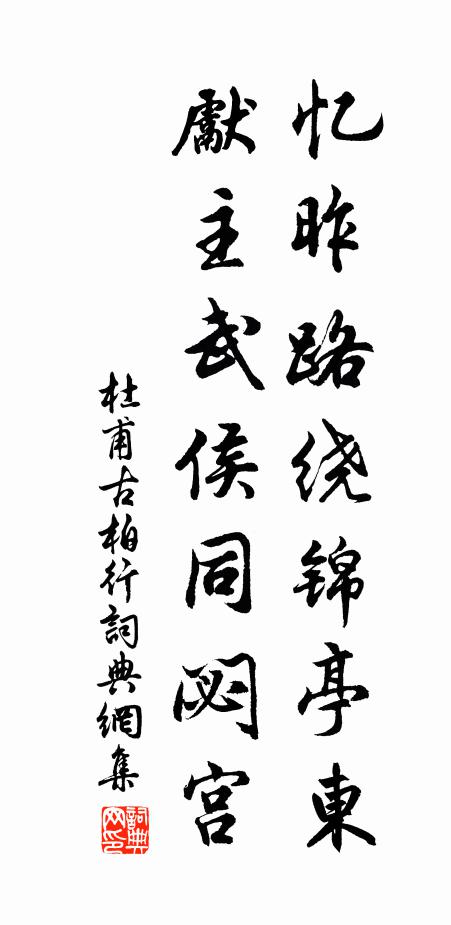 忆昨路绕锦亭東
獻主武侯同閟宫
杜甫古柏行詞典網集
詞典
网印